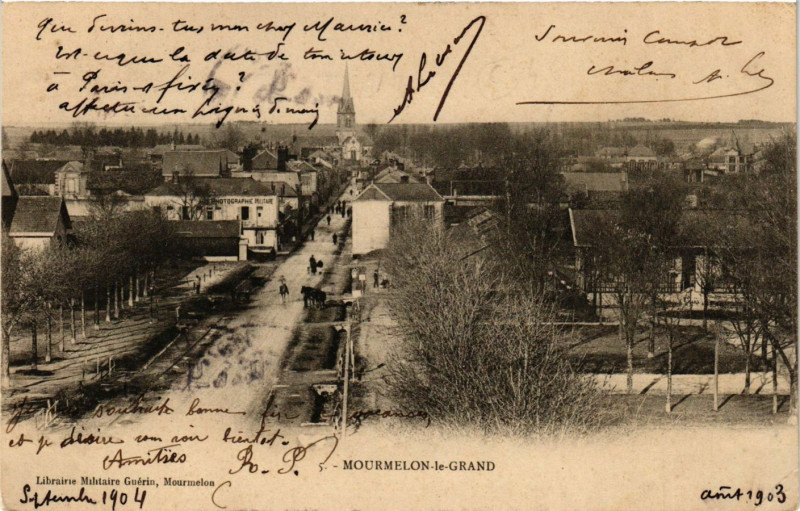 Que deviens-tu mon cher Maurice?
Est-ce que la date de ton retour
à Paris est fixée?
affectueuse poignée de main
Souvenir
PHOTOGRAPHIE MILITAIRE
Je souhaite bonne fin vacances
et je désire vous voir bientôt.
Amitiés R. P.
5. - MOURMELON-le-GRAND
Librairie Militaire Guérin, Mourmelon
Septembre 1904
août 1903